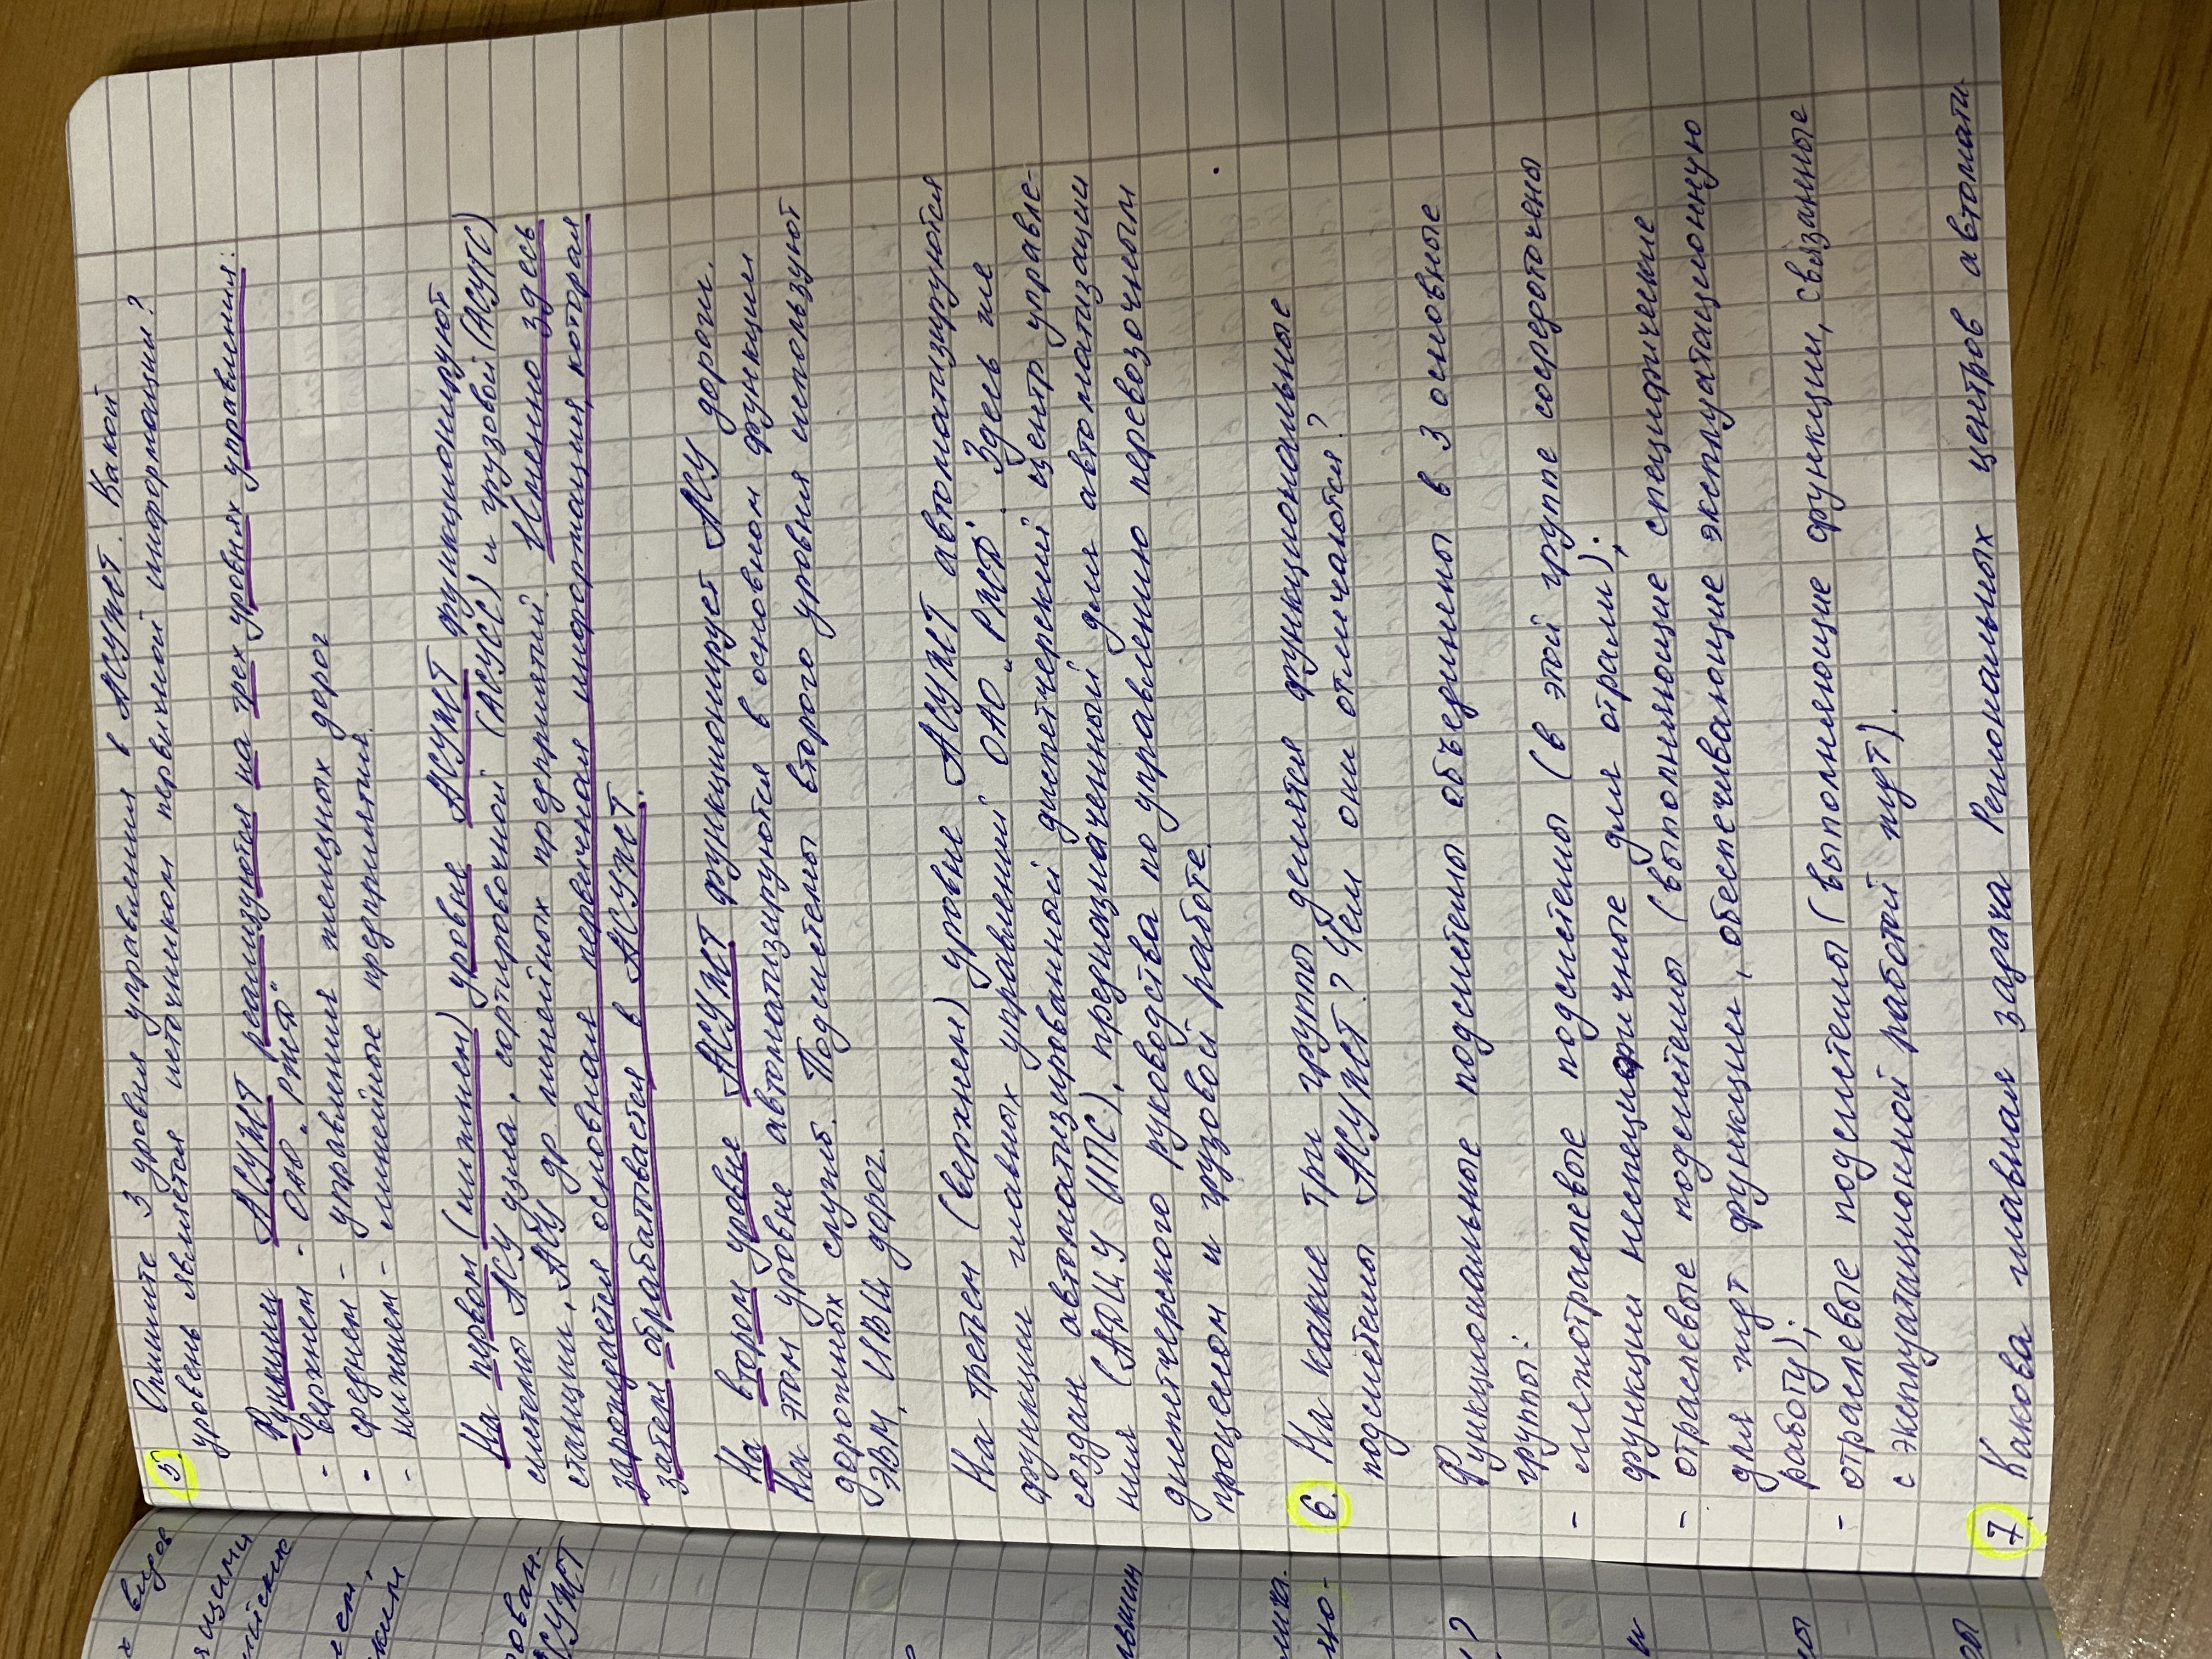 5. Опишите 3 уровня управления в АСУЖТ. Какой
уровень является источником первичной информации?
Функции АСУЖТ реализуются на трех уровнях управления:
- верхнем - ОАО „РЖД"
- среднем - управления железных дорог
- нижнем - линейные предприятия.
На первом (нижнем) уровне АСУЖТ функционируют
системы АСУ узла, сортировочной (АСУСС) и грузовой (АСУГС)
станции, АСУ др линейных предприятий. Именно здесь
зарождается основная первичная информация, которая
затем обрабатывается в АСУЖТ.
На втором уровне АСУЖТ функционирует АСУ дороги.
На этом уровне автоматизируются в основном функции
дорожных служб. Подсистемы второго уровня используют
ЭВМ, ИВЦ дорог.
На третьем (верхнем) уровне АСУЖТ автоматизируются
функции главных управлений ОАО „РЖД". Здесь же
создан автоматизированный диспетчерский центр управле-
ния (АДЦУ МПС), предназначенный для автоматизации
диспетчерского руководства по управлению перевозочным
процессом и грузовой работе.
6. На какие три группы делятся функциональные
подсистемы АСУЖТ? Чем они отличаются?
Функциональные подсистемы объединены в 3 основные
группы:
- межотраслевые подсистемы (в этой группе сосредоточены
функции неспецифичные для отрасли);
- отраслевые подсистемы (выполняющие специфические
для жд функции, обеспечивающие эксплуатационную
работу);
- отраслевые подсистемы (выполняющие функции, связанные
с эксплуатационной работой жд).
7. Какова главная задача Региональных центров автомати
х видов
ящими
жским
рован-
УЖТ
льшин
но-
?
и